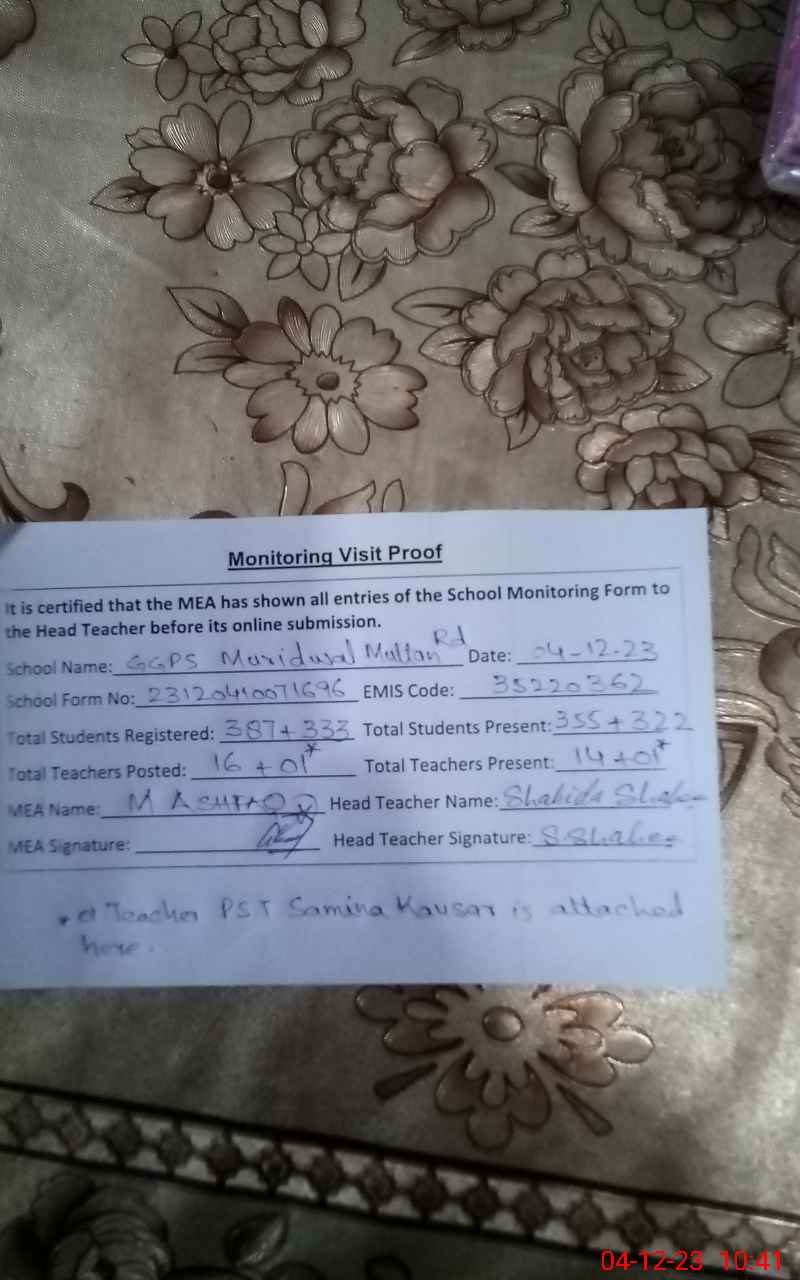 Monitoring Visit Proof
It is certified that the MEA has shown all entries of the School Monitoring Form to
the Head Teacher before its online submission.
School Name: GGPS Muridwal Multan Rd Date: 04-12-23
School Form No: 23120410071696 EMIS Code: 35220362
Total Students Registered: 387+333 Total Students Present: 355+322
Total Teachers Posted: 16 + 01* Total Teachers Present: 14+01*
MEA Name: M ASHFAQ Head Teacher Name: Shahida
MEA Signature: Head Teacher Signature:
* 01 Teacher PST Samina Kausar is attached
here.
04-12-23 10:41